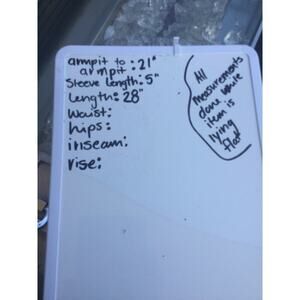 armpit to : 21"
armpit
Sleeve length: 5"
Length: 28"
Waist:
hips:
inseam:
rise:
All
measurements
done while
item is
lying
flat